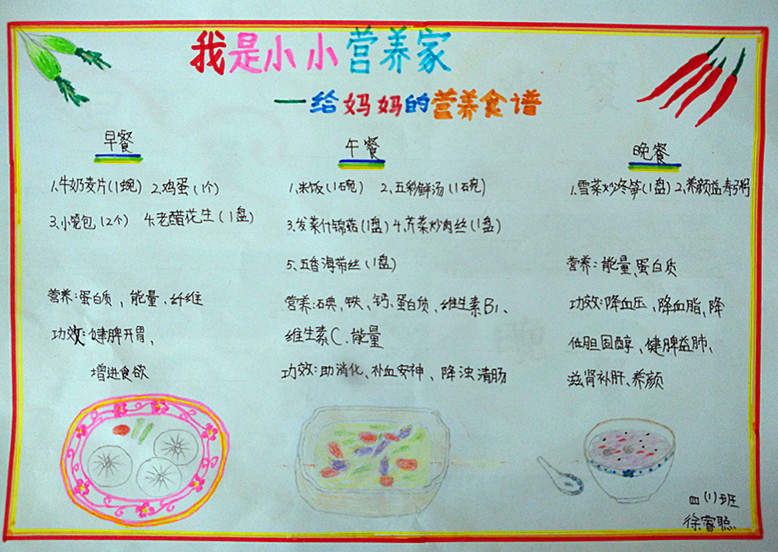 我是小小营养家
—给妈妈的营养食谱
早餐
1.牛奶麦片(1碗) 2.鸡蛋(1个)
3.小笼包(2个) 4.老醋花生(1盘)
营养:蛋白质、能量、纤维
功效:健脾开胃、
增进食欲
午餐
1.米饭(1石碗) 2.五彩鲜汤(1碗)
3.发菜什锦菇(1盘) 4.芹菜炒肉丝(1盘)
5.五香海带丝(1盘)
营养:碘、铁、钙、蛋白质、维生素B1、
维生素C、能量
功效:助消化、补血安神、降浊清肠
晚餐
1.雪菜炒冬笋(1盘) 2.养颜益寿粥
营养:能量、蛋白质
功效:降血压、降血脂、降
低胆固醇、健脾益肺、
滋肾补肝、养颜
四(1)班
徐睿聪